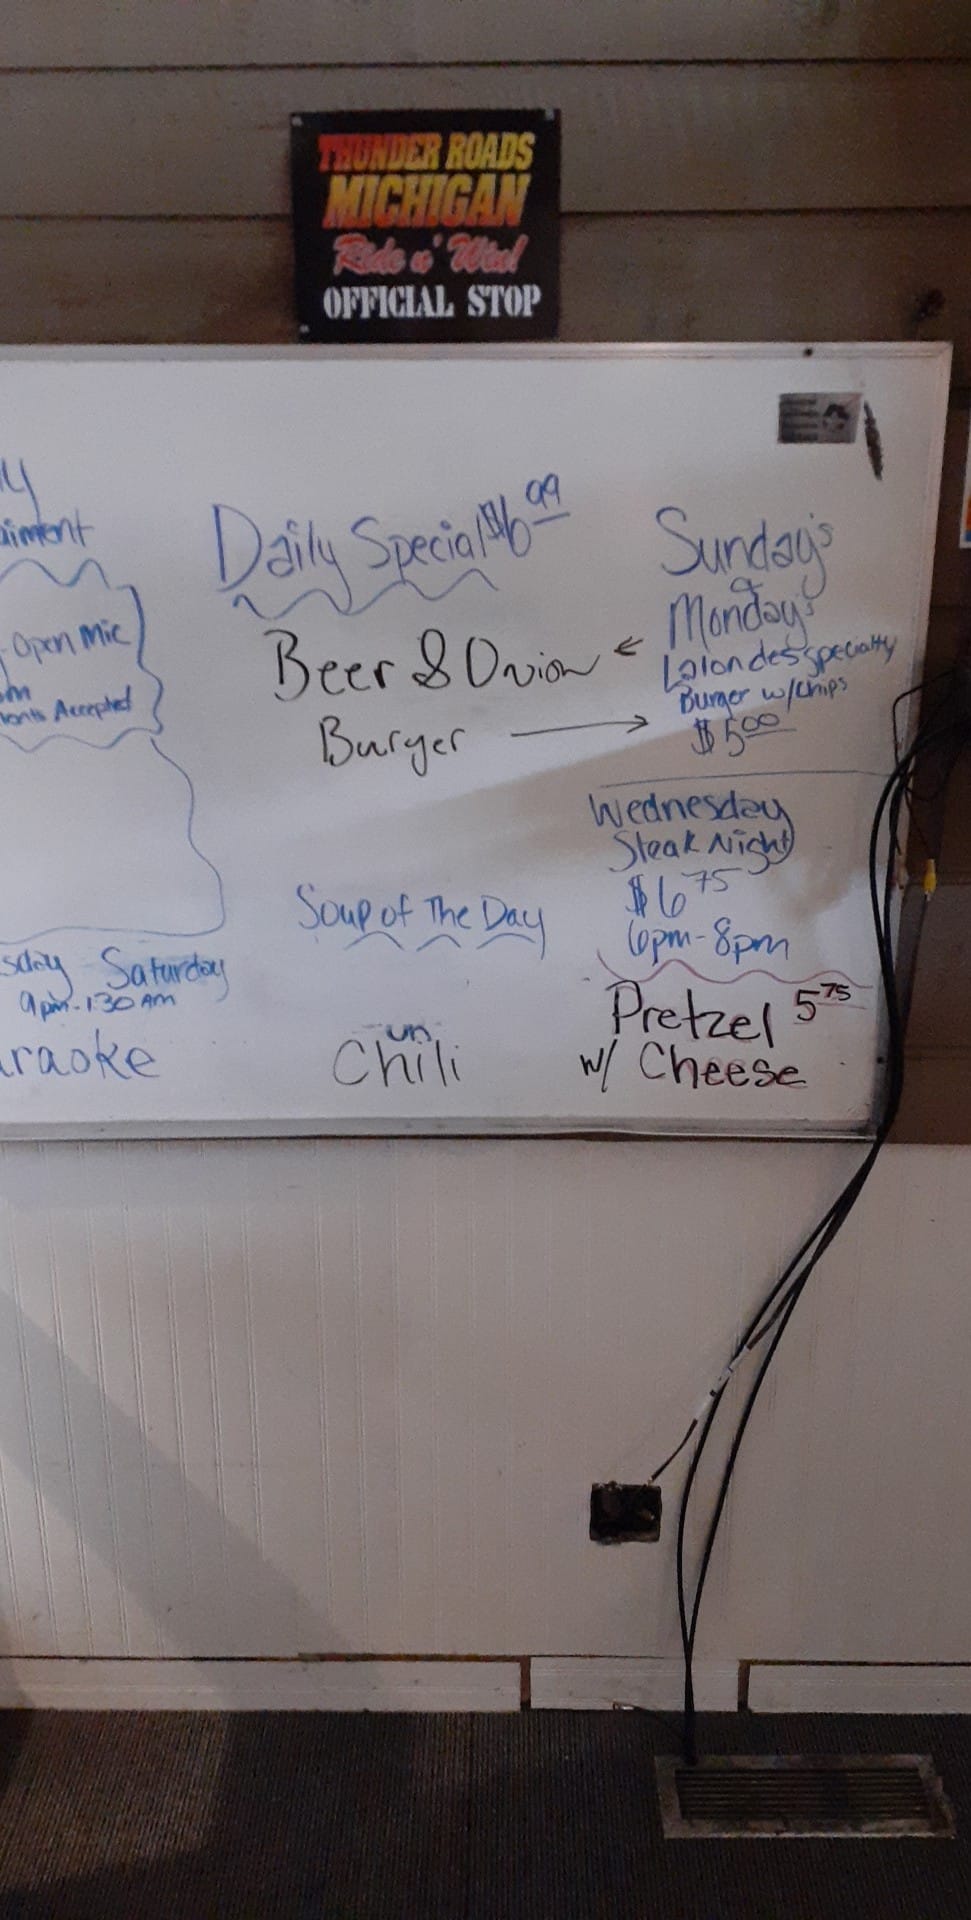 THUNDER ROADS
MICHIGAN
Ride n' Win!
OFFICIAL STOP
y
aiment
Open Mic
m
Accepted
sday Saturday
9pm-1:30 AM
raoke
Daily Special $6 99
Beer & Onion ←
Burger →
Soup of The Day
un
Chili
Sunday's
&
Monday's
Lalondes specialty
Burger w/chips
$5 00
Wednesday
Steak Night
$6 75
6pm-8pm
Pretzel 5 75
w/ Cheese